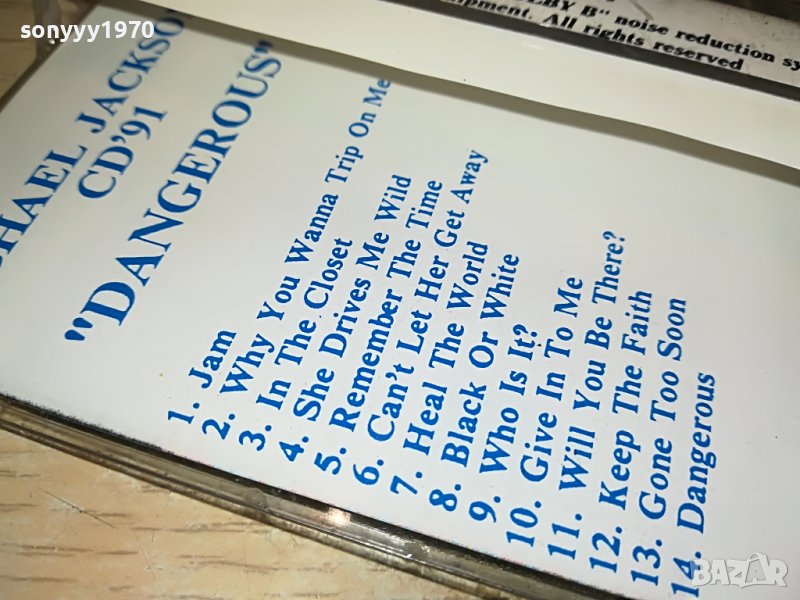 sonyyy1970
BY B" noise reduction
All rights reserved
JACKSO
CD'91
"DANGEROUS"
1. Jam
2. Why You Wanna Trip On Me
3. In The Closet
4. She Drives Me Wild
5. Remember The Time
6. Can't Let Her Get Away
7. Heal The World
8. Black Or White
9. Who Is It?
10. Give In To Me
11. Will You Be There?
12. Keep The Faith
13. Gone Too Soon
14. Dangerous
BAZAR